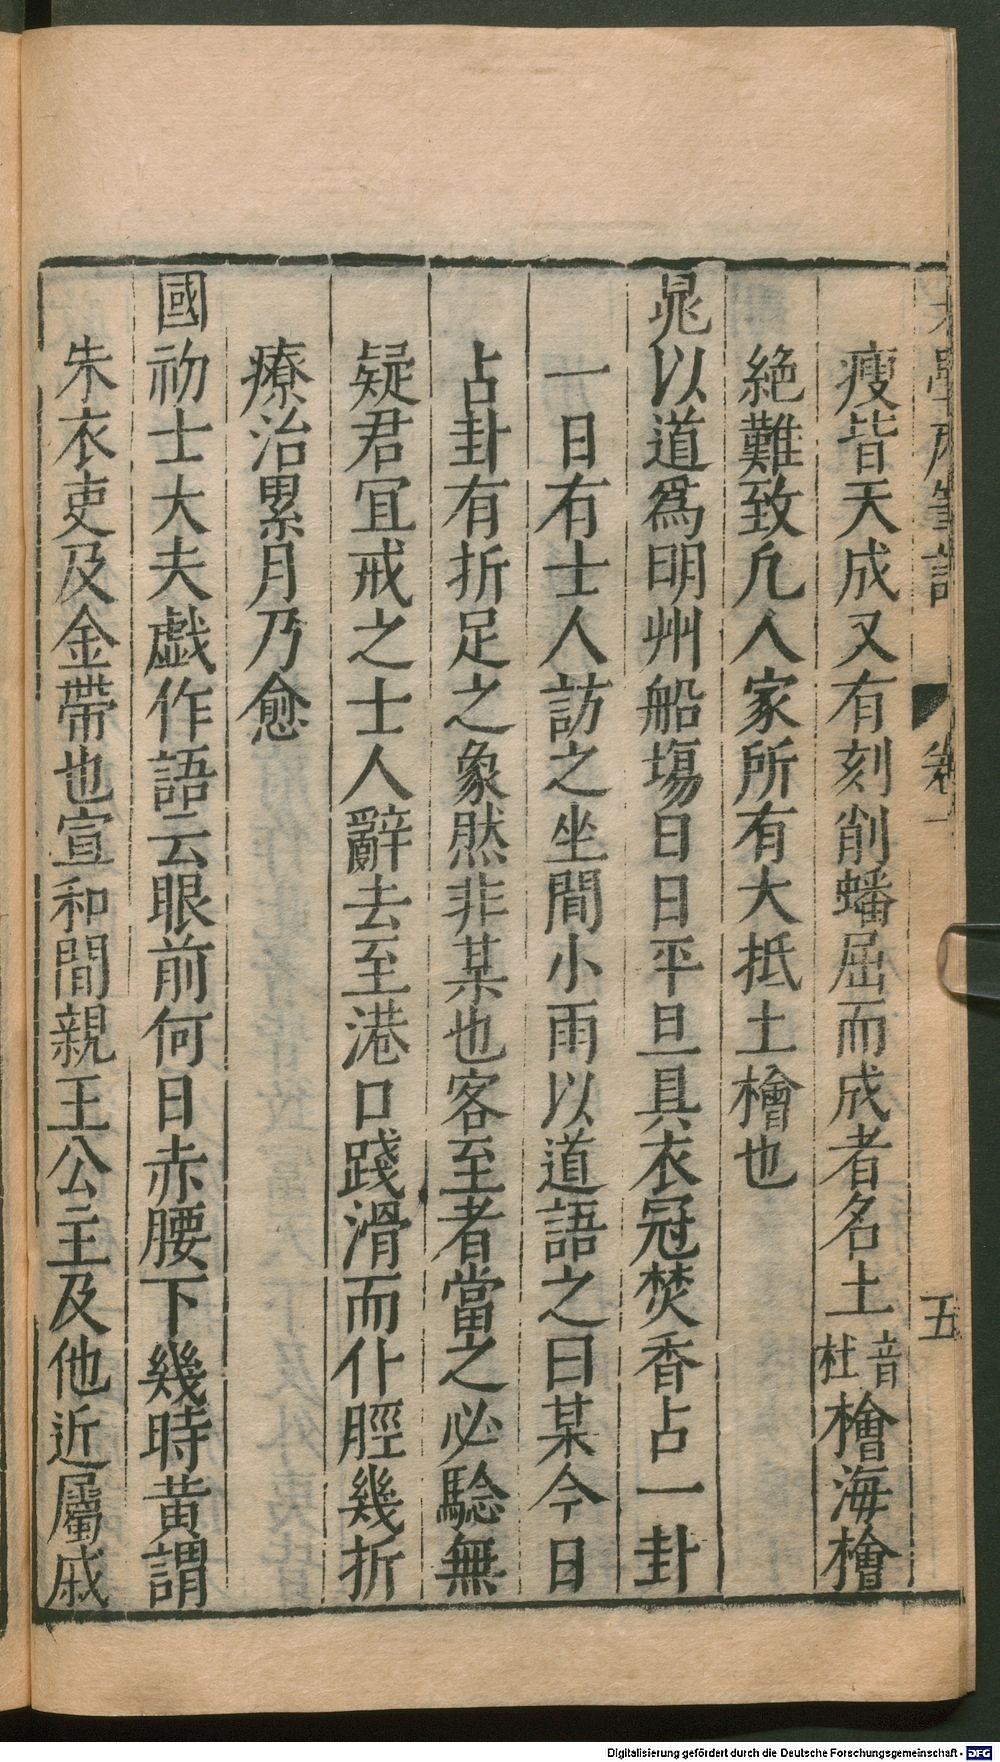 老學庵筆記 卷一 五
瘦皆天成又有刻削蟠屈而成者名土音杜檜海檜
絶難致凡人家所有大抵土檜也
晁以道爲明州船塲日日平旦具衣冠焚香占一卦
一日有士人訪之坐間小雨以道語之曰某今日
占卦有折足之象然非某也客至者當之必驗無
疑君宜戒之士人辭去至港口踐滑而仆脛幾折
療治累月乃愈
國初士大夫戯作語云眼前何日赤腰下幾時黄謂
朱衣吏及金帶也宣和間親王公主及他近屬戚
Digitalisierung gefördert durch die Deutsche Forschungsgemeinschaft - DFG